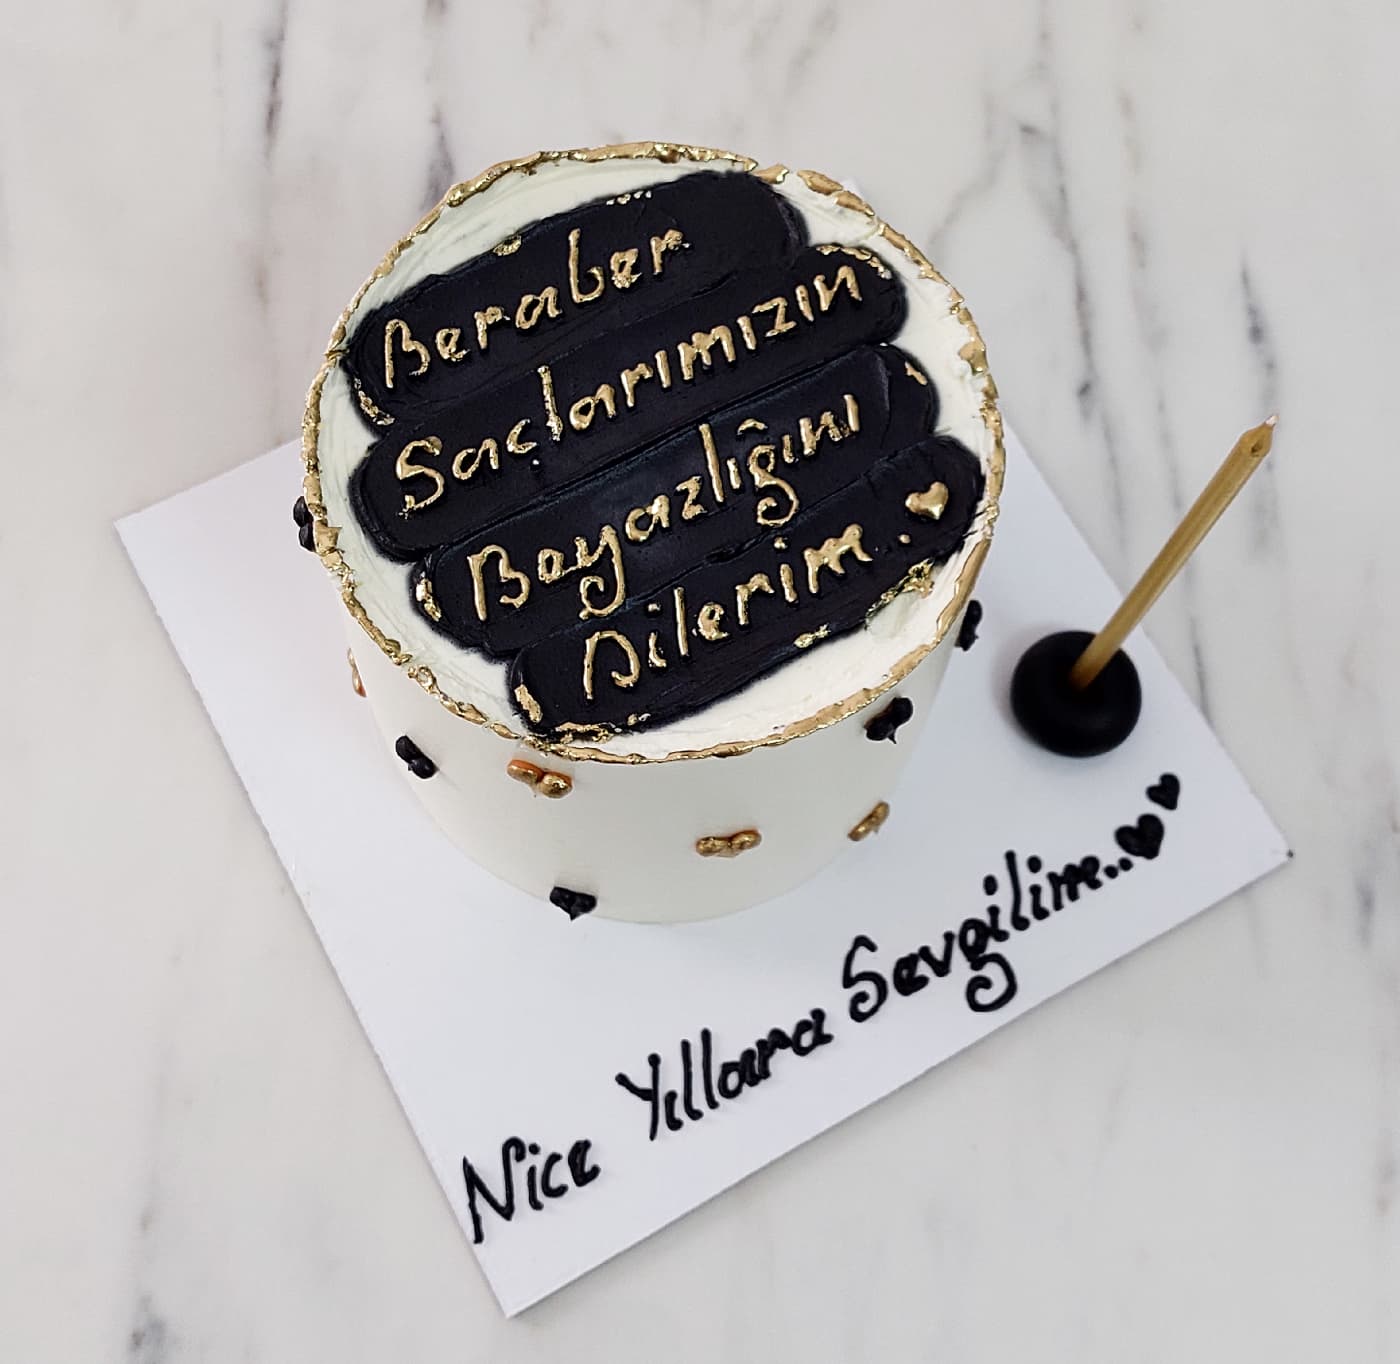 Beraber
Saçlarımızın
Beyazlığını
Dilerim..
Nice Yıllara Sevgilim..